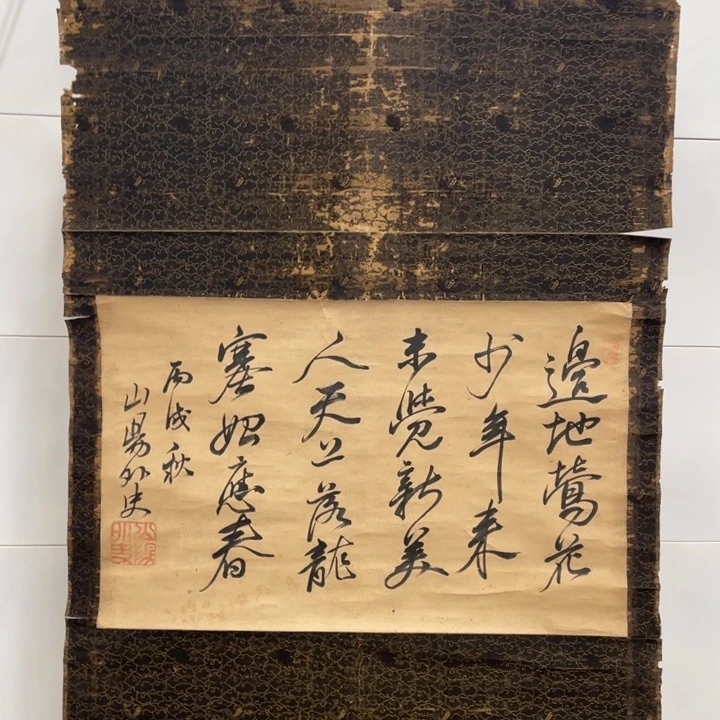 邊地鶯花
少年来
未覺新美
人天上落龍
塞始應春
丙戌秋
山陽外史
山陽外史